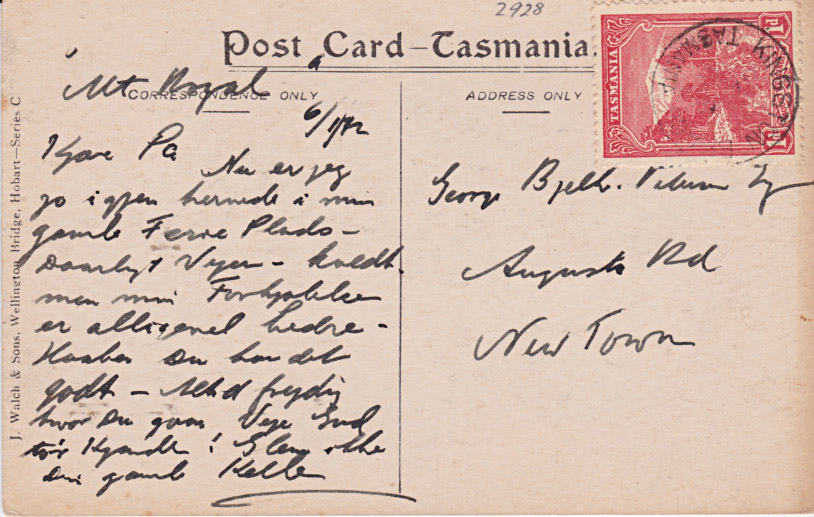 2928
Post Card–Tasmania.
CORRESPONDENCE ONLY
ADDRESS ONLY
TASMANIA
J. Walch & Sons, Wellington Bridge, Hobart—Series C
Mt Royal
Kjære Pa
Nu er jeg
jo igjen hernede i min
gamle Ferie Plads –
Daarligt Vejer – koldt.
men min Forkjølelse
er alligevel bedre –
Haaber Du har det
godt – Altid frejdig
hvor Du gaar Veje Gud
tør Kjende! Glem ikke
Din gamle Kalle
George Bjelke-Petersen Esq
Augusta Rd
New Town